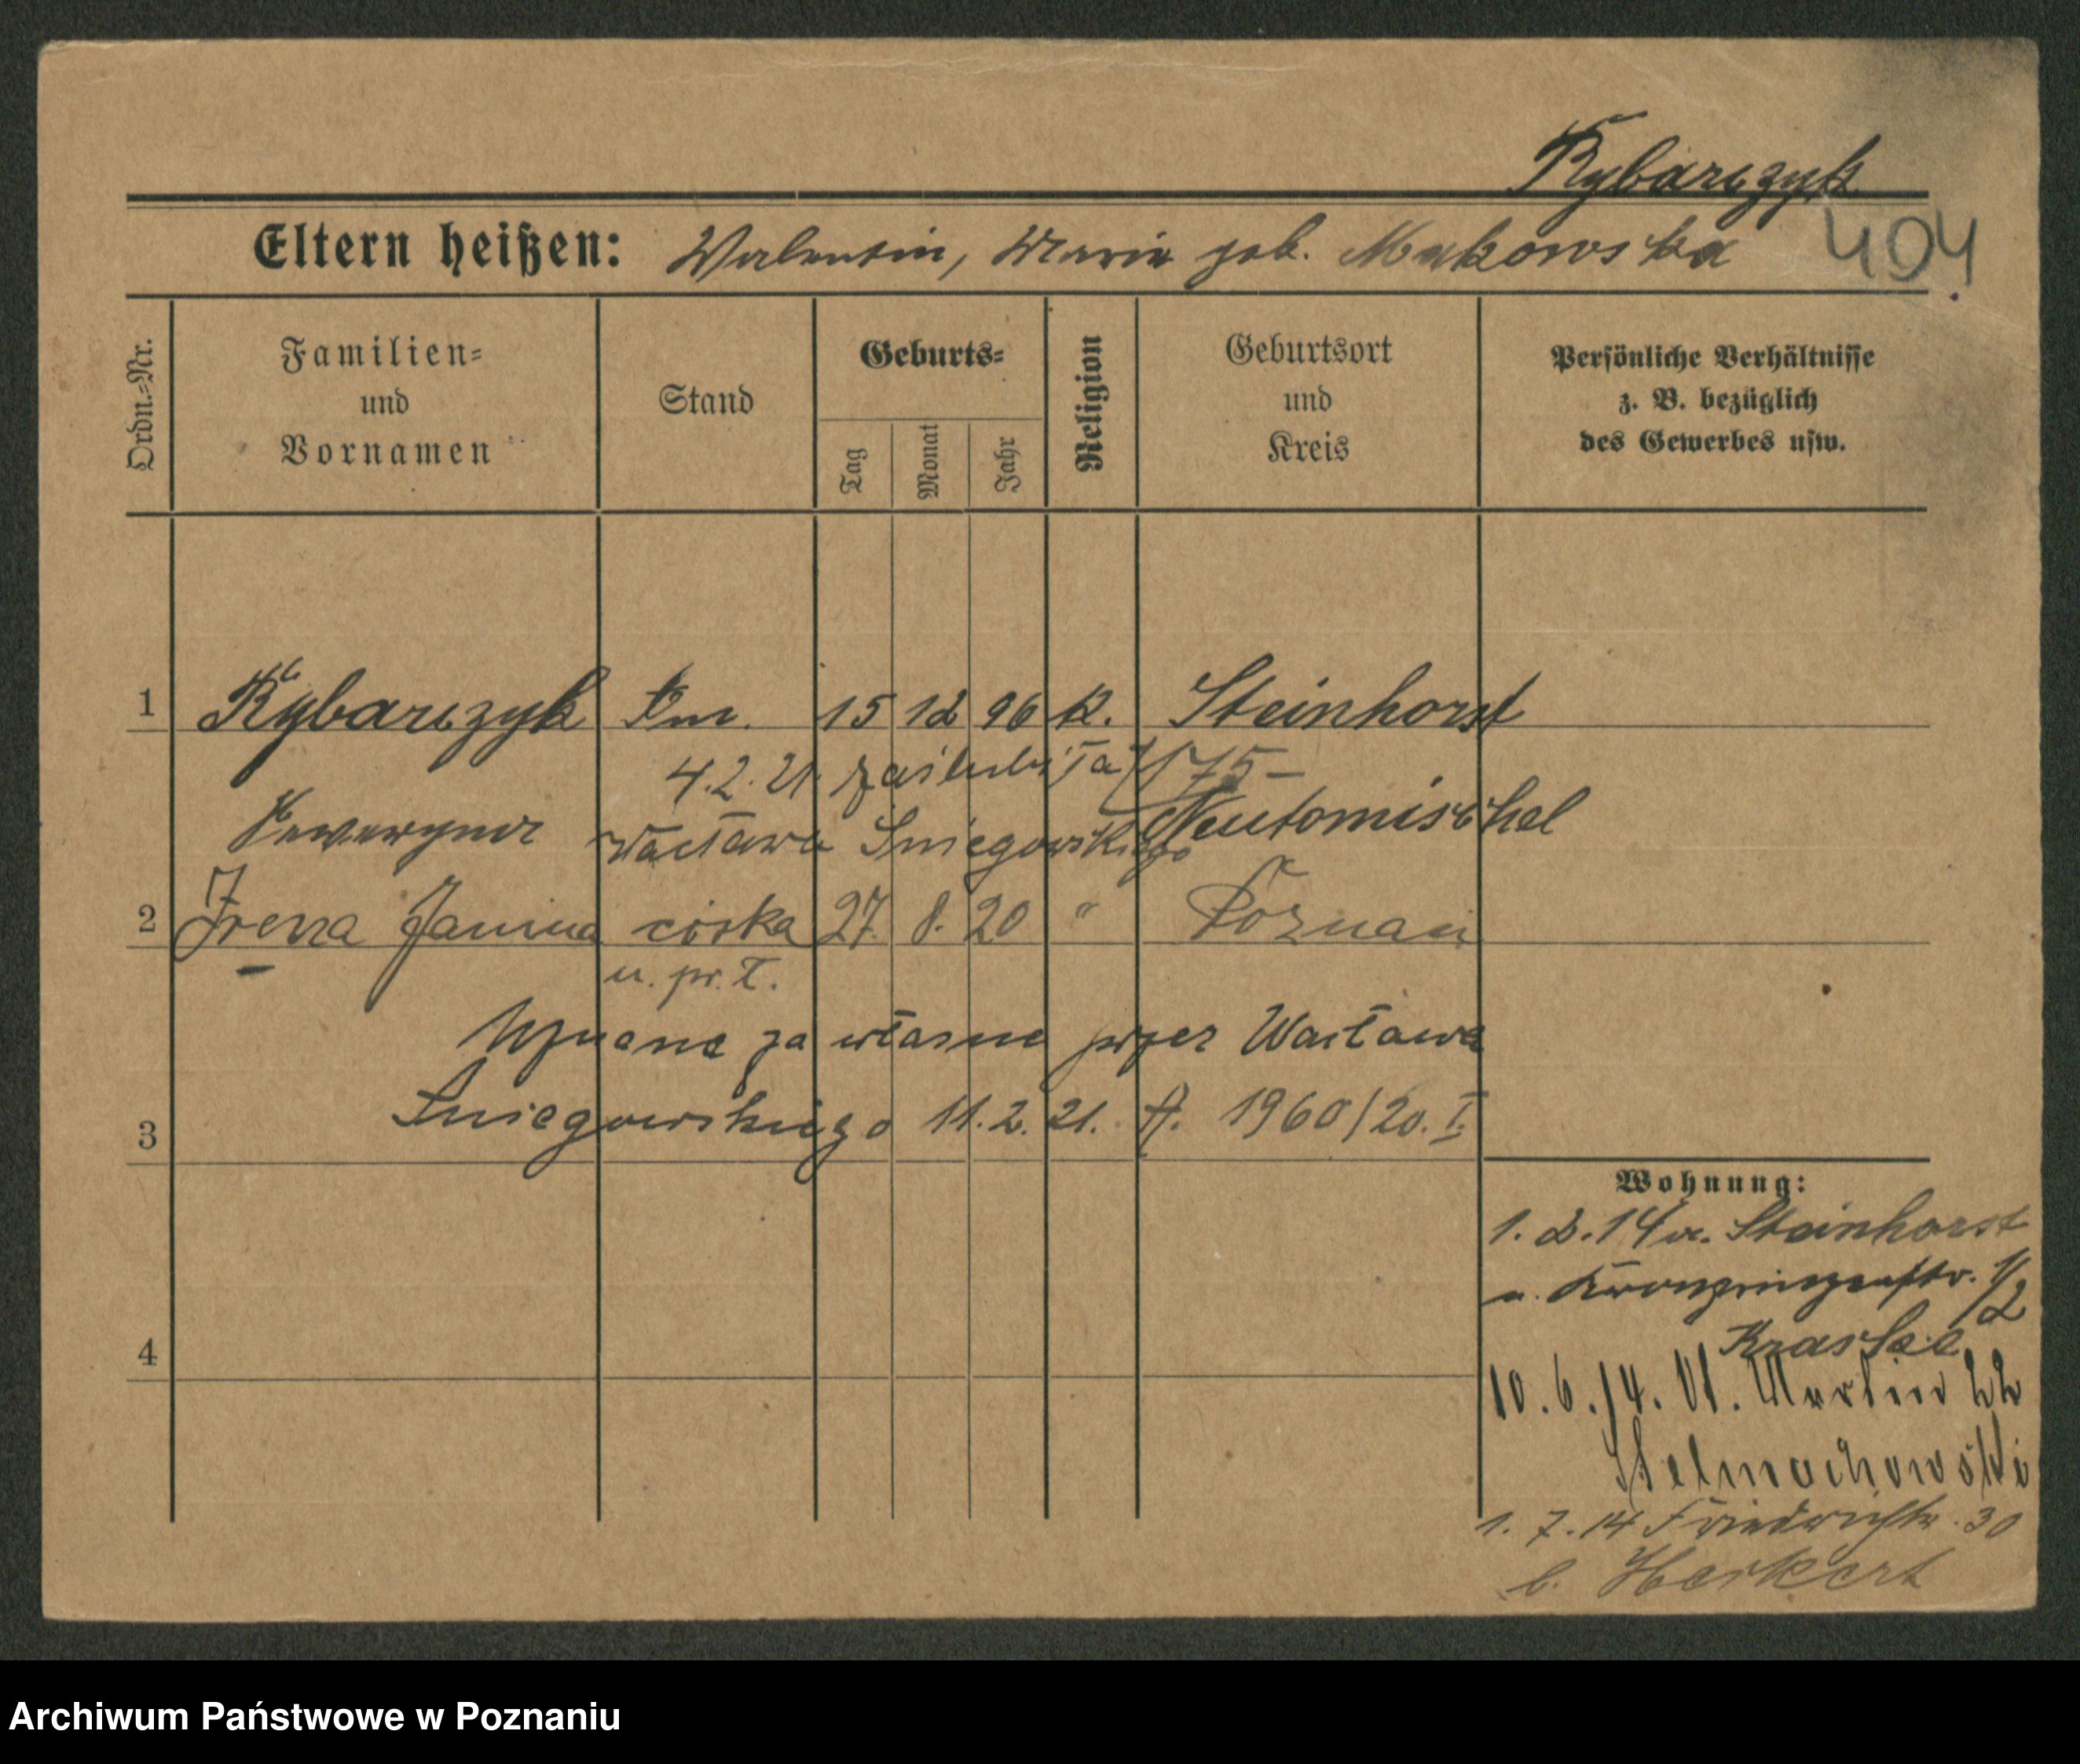 Rybarczyk
Eltern heißen: Valentin, Marie geb. Makowska 404
Ordn.=Nr.
Familien=
und
Vornamen
Stand
Geburts=
Tag
Monat
Jahr
Religion
Geburtsort
und
Kreis
Persönliche Verhältnisse
z. B. bezüglich
des Gewerbes usw.
1 Rybarczyk 15 12 96 K. Steinhorst
4.2.21. zaślubiła 175
Seweryna Neutomischel
Wacława Śniegowskiego
2 Irena Janina córka 27. 8. 20 " Poznań
u. pr. ł.
Uznane za własne przez Wacława
3 Śniegowskiego 11.2.21. A. 1960/20. I.
4
Wohnung:
1. 2. 14 v. Steinhorst
n. Kronprinzenstr. 1/2
10. 6. 14. St. Martin 22
Stelmachowski
1. 7. 14 Friedrichstr. 30
b. Herkert
Archiwum Państwowe w Poznaniu